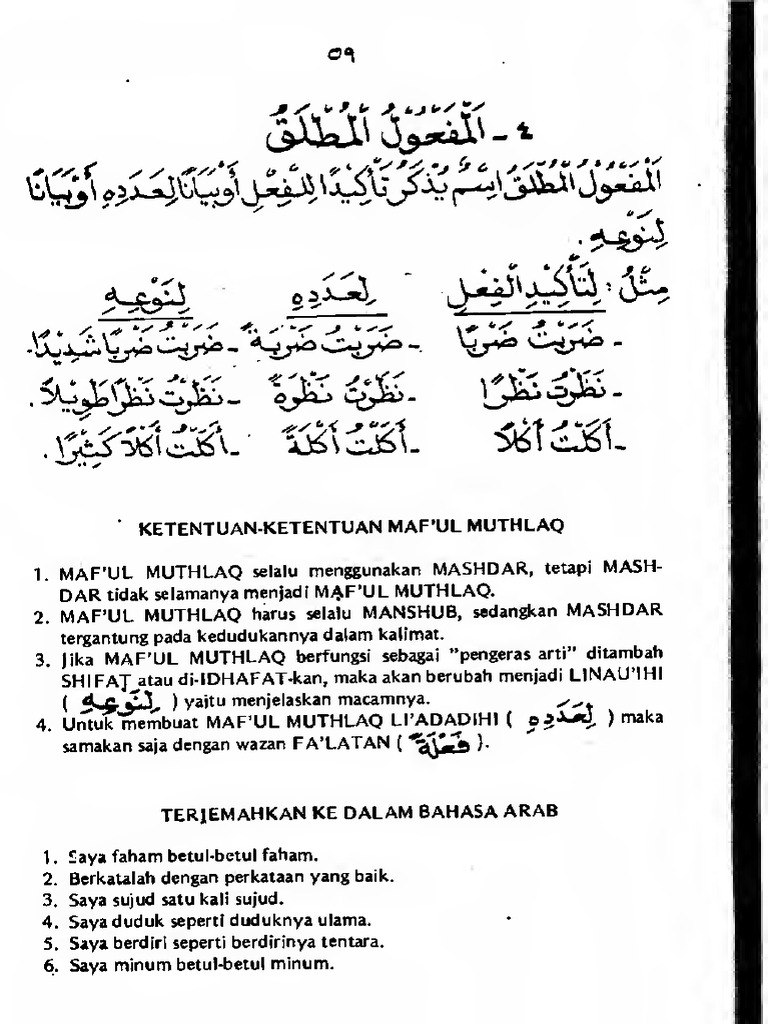 ٥٩
٤ - اَلْمَفْعُوْلُ الْمُطْلَقُ
اَلْمَفْعُوْلُ الْمُطْلَقُ اِسْمٌ يُذْكَرُ تَأْكِيْدًا لِلْفِعْلِ أَوْ بَيَانًا لِعَدَدِهِ أَوْ بَيَانًا
لِنَوْعِهِ .
مِثْلُ : لِتَأْكِيْدِ الْفِعْلِ لِعَدَدِهِ لِنَوْعِهِ
- ضَرَبْتُ ضَرْبًا - ضَرَبْتُ ضَرْبَةً - ضَرَبْتُ ضَرْبًا شَدِيْدًا.
- نَظَرْتُ نَظْرًا - نَظَرْتُ نَظْرَةً - نَظَرْتُ نَظْرًا طَوِيْلاً .
- أَكَلْتُ أَكْلاً - أَكَلْتُ أَكْلَةً - أَكَلْتُ أَكْلاً كَثِيْرًا .
KETENTUAN-KETENTUAN MAF'UL MUTHLAQ
1. MAF'UL MUTHLAQ selalu menggunakan MASHDAR, tetapi MASH-
DAR tidak selamanya menjadi MAF'UL MUTHLAQ.
2. MAF'UL MUTHLAQ harus selalu MANSHUB, sedangkan MASHDAR
tergantung pada kedudukannya dalam kalimat.
3. Jika MAF'UL MUTHLAQ berfungsi sebagai "pengeras arti" ditambah
SHIFAT atau di-IDHAFAT-kan, maka akan berubah menjadi LINAU'IHI
( لِنَوْعِهِ ) yaitu menjelaskan macamnya.
4. Untuk membuat MAF'UL MUTHLAQ LI'ADADIHI ( لِعَدَدِهِ ) maka
samakan saja dengan wazan FA'LATAN ( فَعْلَةً ).
TERJEMAHKAN KE DALAM BAHASA ARAB
1. Saya faham betul-betul faham.
2. Berkatalah dengan perkataan yang baik.
3. Saya sujud satu kali sujud.
4. Saya duduk seperti duduknya ulama.
5. Saya berdiri seperti berdirinya tentara.
6. Saya minum betul-betul minum.